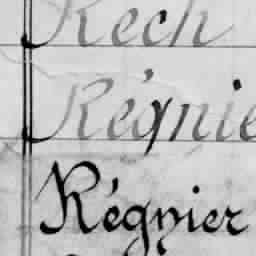 Rech
Régnie
Régnier